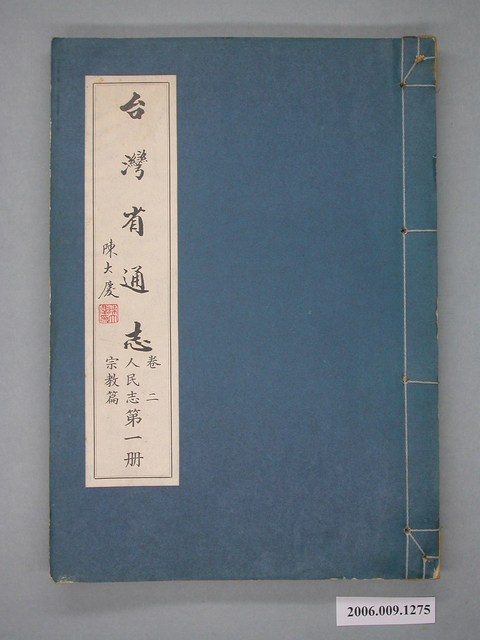 台灣省通志
卷二
人民志
宗教篇
第一册
陳大慶
2006.009.1275